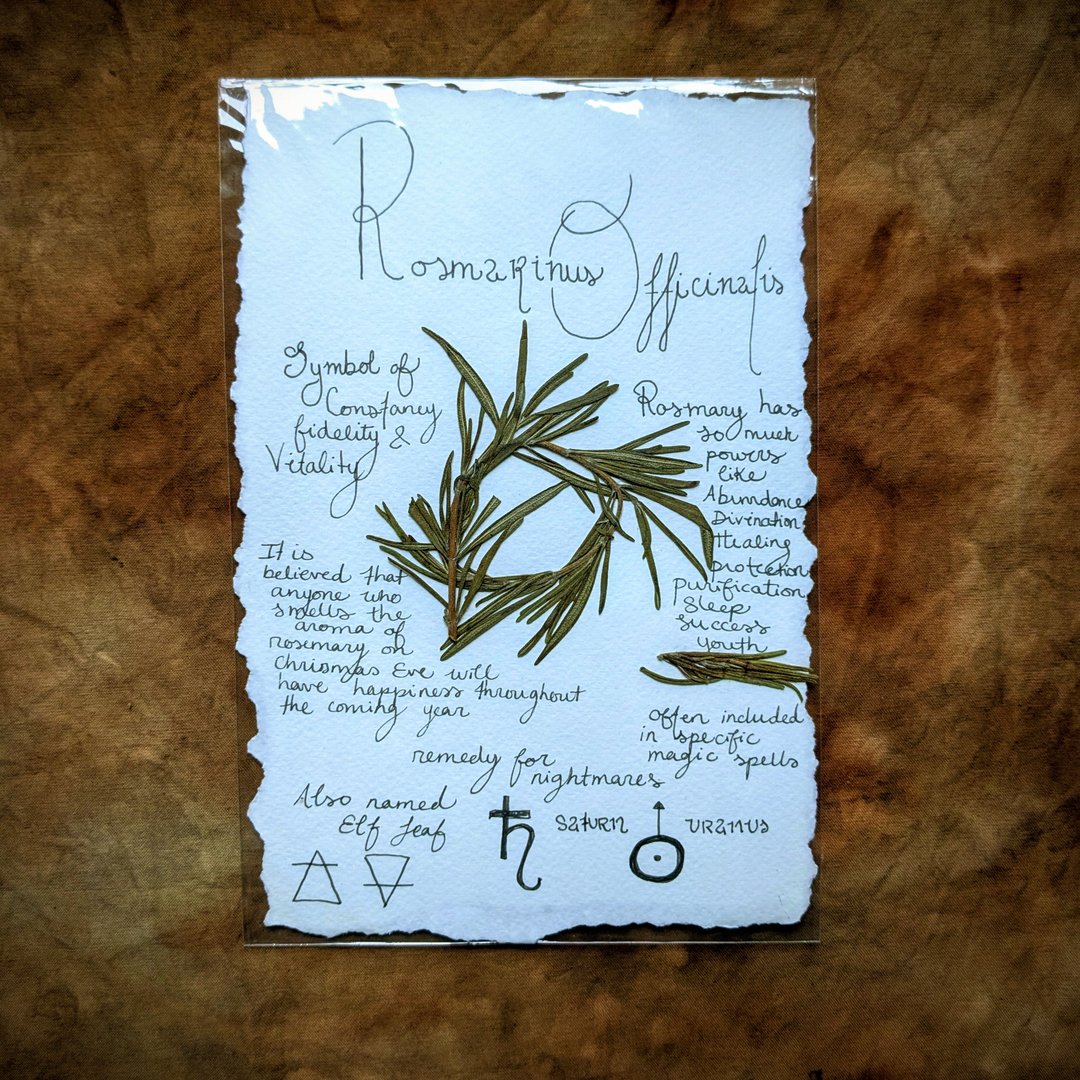 Rosmarinus Officinalis
Symbol of
Constancy
fidelity &
Vitality
Rosmary has
so much
powers
like
Abunndance
Divination
Healing
protection
purification
Sleep
success
youth
It is
believed that
anyone who
smells the
aroma of
rosemary on
Chrismas Eve will
have happiness throughout
the coming year
often included
in specific
magic spells
remedy for
nightmares
Also named
Elf leaf
SaTURN
URaNUS